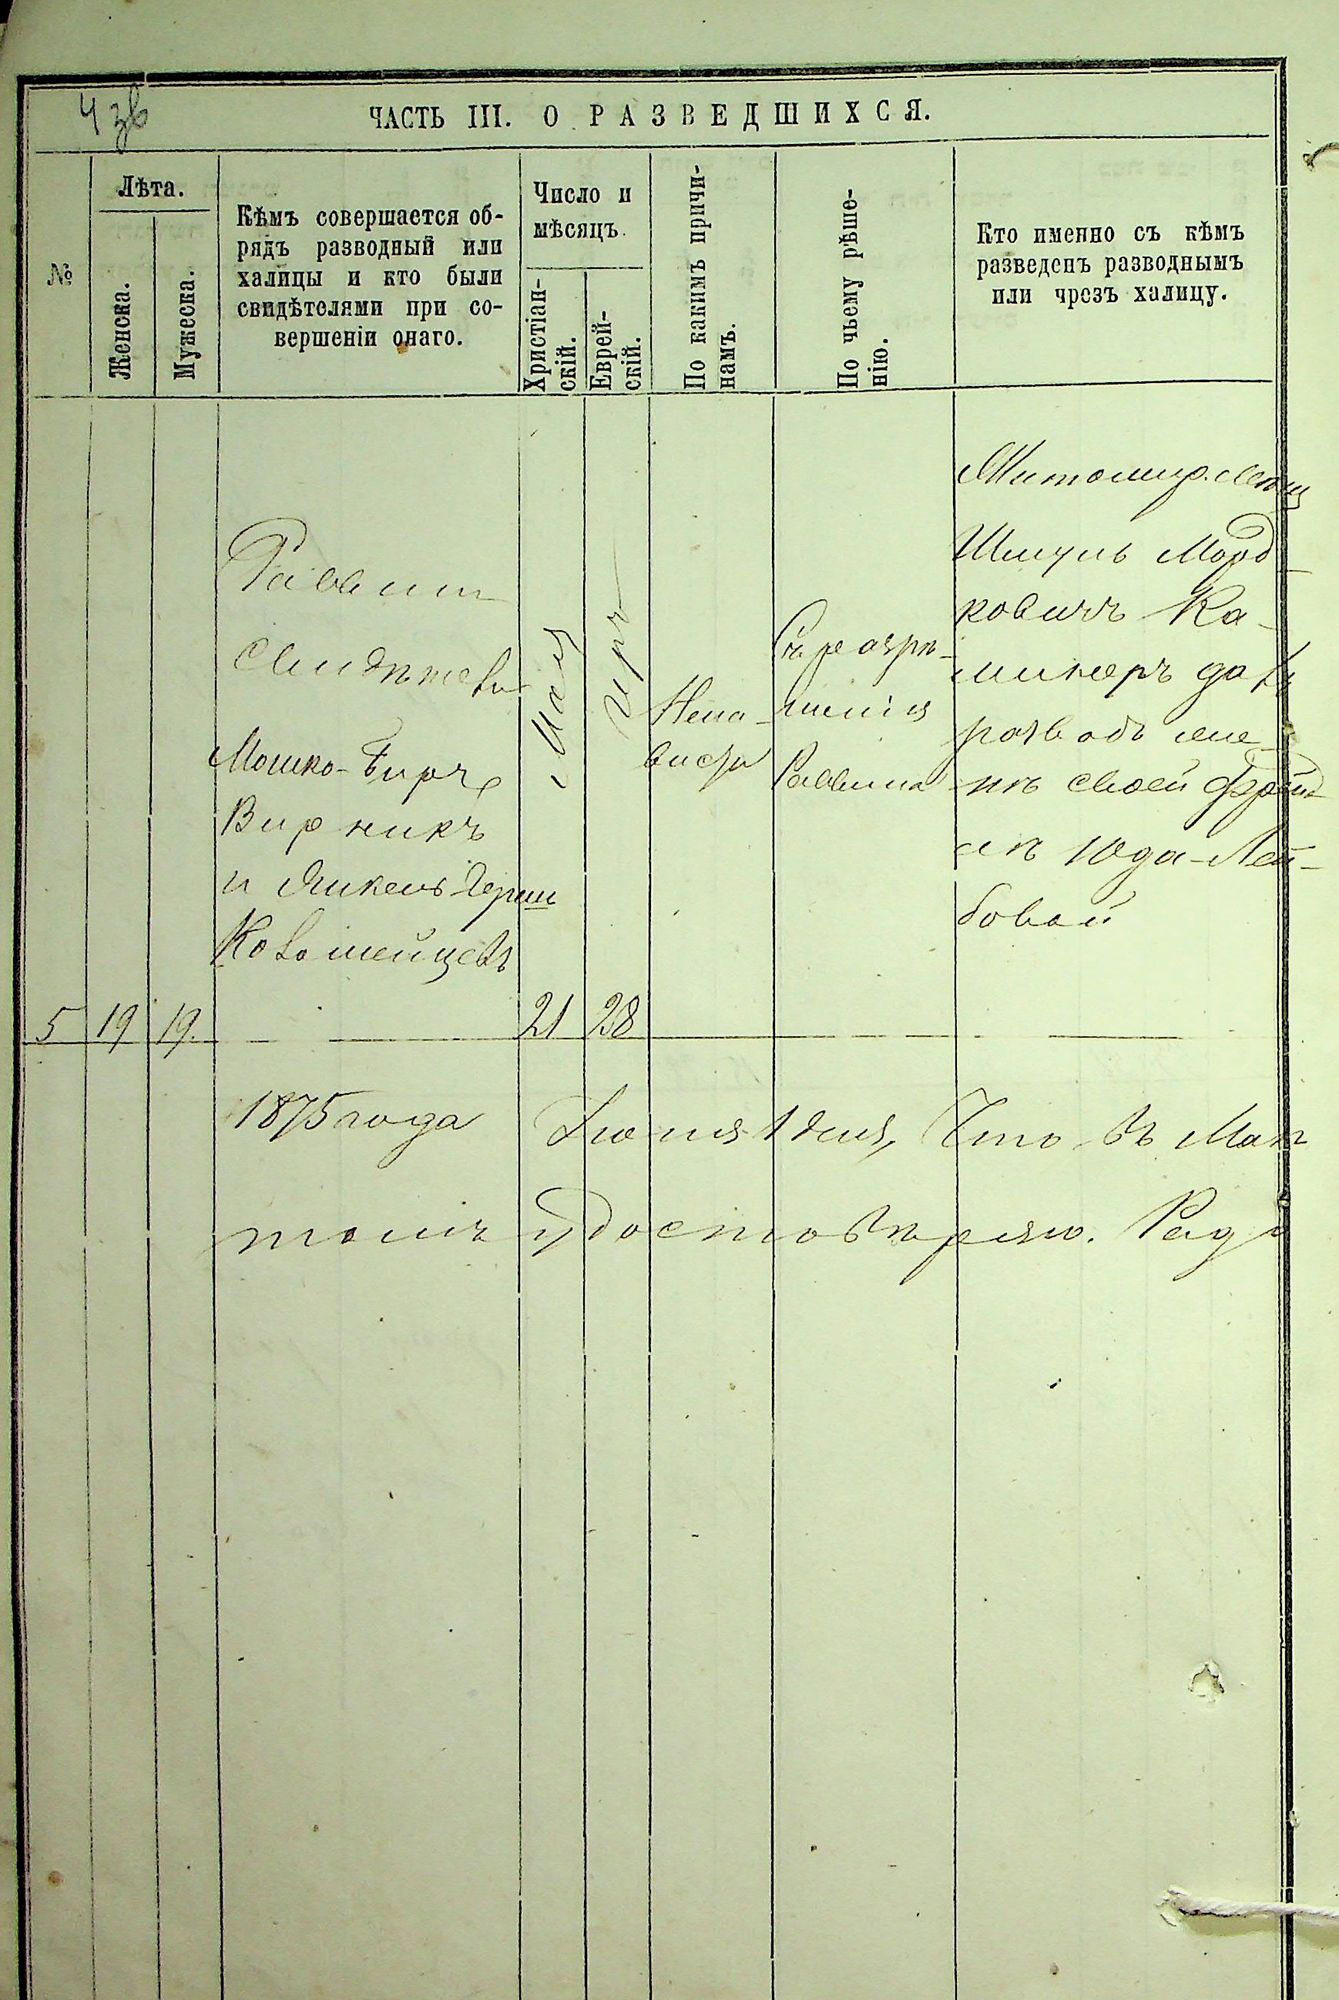 ЧАСТЬ III. О РАЗВЕДШИХСЯ.
№
Лѣта.
Женска.
Мужеска.
Кѣмъ совершается об-
рядъ разводный или
халицы и кто были
свидѣтелями при со-
вершеніи онаго.
Число и
мѣсяцъ.
Христіан-
скій.
Еврей-
скій.
По какимъ причи-
намъ.
По чьему рѣше-
нію.
Кто именно съ кѣмъ
разведенъ разводнымъ
или чрезъ халицу.
Раввин
Свидѣтели
Мошко-Биръ
Вирникъ
и Янкель Герш
Коломейцевъ
Мая
Иръ
Нена-
висти
Съ разрѣ-
шенія
Раввина
Житомир.
Шмуль Морд-
ковичъ Ка-
минеръ далъ
разводъ же-
нѣ своей
Юда-Лей-
бовой
5 19 19. 21 28
1875 года Іюня 1 дня, Что въ
удостовѣряю.